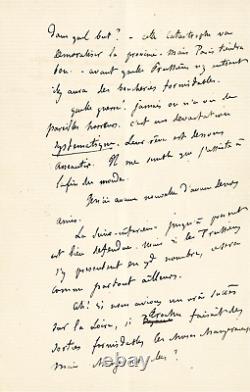 dans quel but ? - cette catastrophe va
démoraliser la province - mais Paris tiendra
bon. - avant que les Prussiens n'y entrent
il y aura des boucheries formidables.
quelle guerre ! jamais on n'a vu de
pareilles horreurs. c'est une dévastation
systématique. Leur rêve est de nous
anéantir. Il me semble que j'assiste à
la fin du monde.
Je n'ai aucune nouvelle d'aucun de mes
amis.
La Seine-inférieure jusqu'à présent
est bien défendue. Mais si les Prussiens
s'y présentent en gd nombre, ce sera
comme partout ailleurs.
Oh ! si nous avions un vrai succès
sur la Loire, si Trochu faisait des
sorties formidables
mais